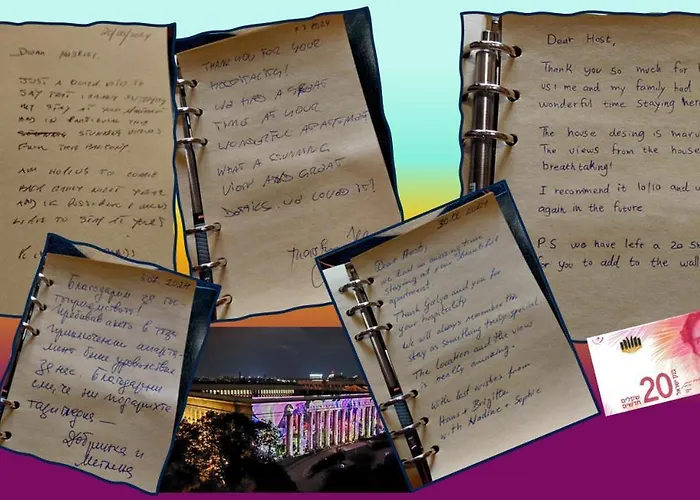 20/05/2024
JUST A QUICK NOTE TO
SAY THAT I REALLY ENJOYED
MY STAY AT YOUR APARTMENT
AND IN PARTICULAR THE
STUNNING VIEWS
FROM THE BALCONY.
AM HOPING TO COME
BACK EARLY NEXT YEAR
AND IF POSSIBLE I WOULD
LIKE TO STAY AT YOURS
2024
THANK YOU FOR YOUR
HOSPITALITY!
WE HAD A GREAT
TIME AT YOUR
WONDERFUL APARTMENT
WHAT A STUNNING
VIEW AND GREAT
WE LOVED IT!
Dear Host,
Thank you so much for
us! me and my family had
wonderful time staying here
The house desing is
The views from the house
breathtaking!
I recommend it 10/10 and
again in the future
P.S we have left a 20
for you to add to the wall
2024
Благодарим за гос-
топриемството!
в този
апарта-
мент беше удоволствие
за нас. Благодарим
ви, че ни подарихте
тази
Добринка и
2024
Dear Host,
we had an amazing time
staying at your beautiful
apartment.
Thank Galya and you for
your hospitality.
We will always remember this
stay as something truly special.
The location and the view
is really amazing.
With best wishes from
Hans + Brigitte
with Nadine + Sophie
20